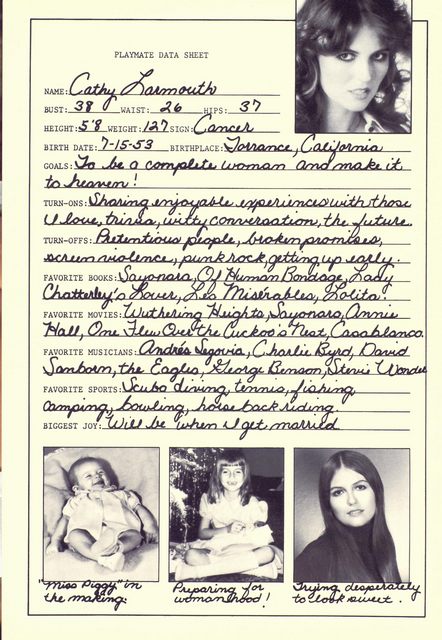 PLAYMATE DATA SHEET
NAME: Cathy Larmouth
BUST: 38 WAIST: 26 HIPS: 37
HEIGHT: 5'8 WEIGHT: 127 SIGN: Cancer
BIRTH DATE: 7-15-53 BIRTHPLACE: Torrance, California
GOALS: To be a complete woman and make it
to heaven!
TURN-ONS: Sharing enjoyable experiences with those
I love, trivia, witty conversation, the future.
TURN-OFFS: Pretentious people, broken promises,
screen violence, punk rock, getting up early.
FAVORITE BOOKS: Sayonara, Of Human Bondage, Lady
Chatterley's Lover, Les Misérables, Lolita.
FAVORITE MOVIES: Wuthering Heights, Sayonara, Annie
Hall, One Flew Over the Cuckoo's Nest, Casablanca.
FAVORITE MUSICIANS: Andrés Segovia, Charlie Byrd, David
Sanborn, the Eagles, George Benson, Stevie Wonder
FAVORITE SPORTS: Scuba diving, tennis, fishing,
camping, bowling, horseback riding.
BIGGEST JOY: Will be when I get married.
"Miss Piggy" in
the making.
Preparing for
womanhood!
Trying desperately
to look sweet.